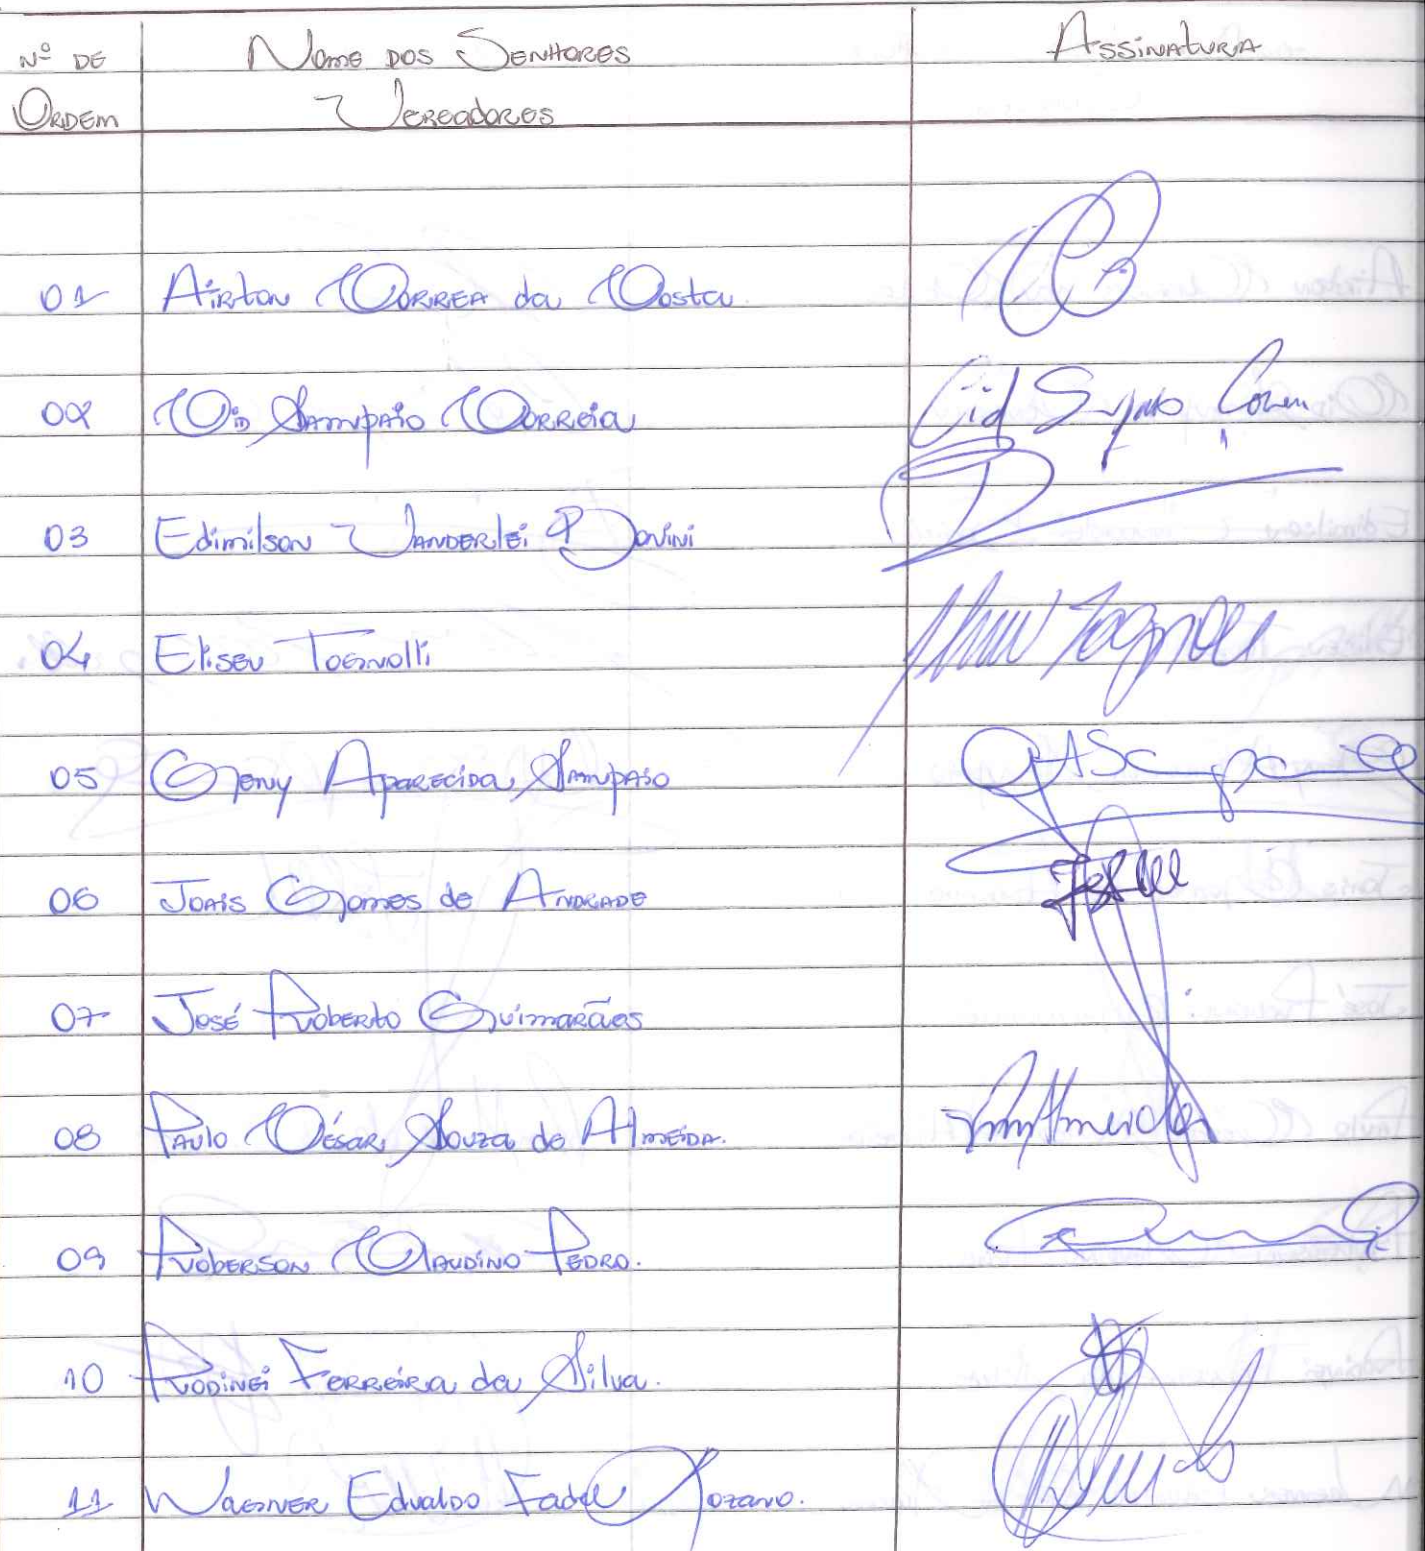 Nº DE Nome dos Senhores Assinatura
Ordem Vereadores
01 Airton Correa da Costa
02 Cid Sampaio Correia Cid
03 Edimilson Vanderlei Donini
04 Eliseu Tognolli Tognolli
05 Geny Aparecida Sampaio
06 Joais Gomes de Andrade
07 José Roberto Guimarães
08 Paulo César Souza de Almeida. Almeida
09 Roberson Claudino Pedro.
10 Rodinei Ferreira da Silva.
11 Wagner Edvaldo Fadel Lozano.